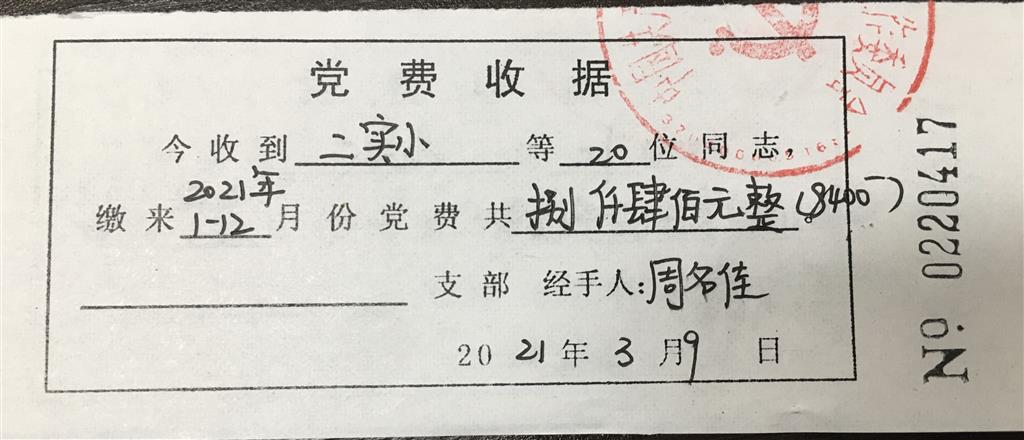 党费收据
今收到 二实小 等 20 位同志,
缴来 2021年 1-12 月份党费共 捌仟肆佰元整(8400一)
支部 经手人:周名佳
2021年3月9日
No. 0220417